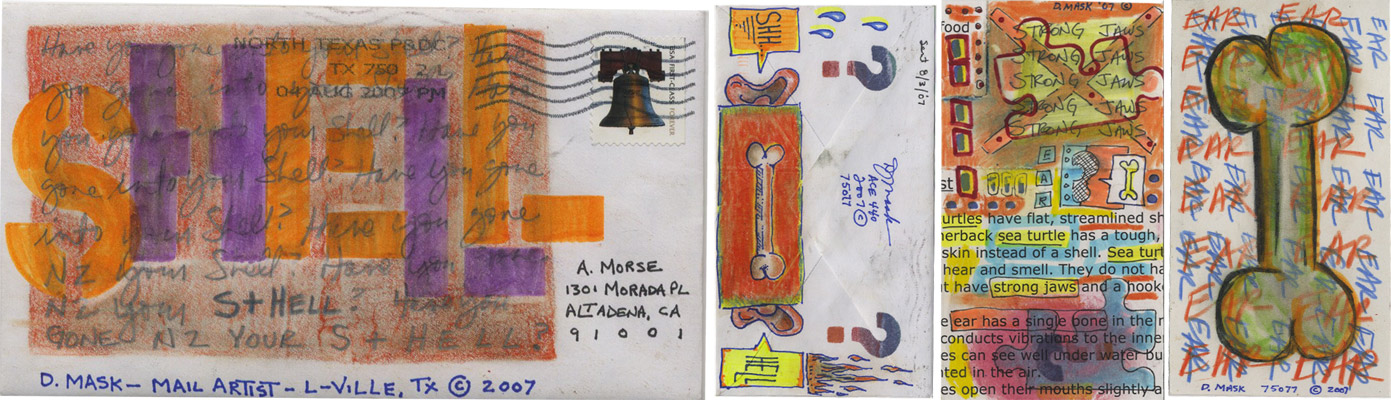 SHELL
NORTH TEXAS P&DC
TX 750 2 L
04 AUG 2007 PM
Have you gone
you gone into your Shell? Have you
gone into your Shell? Have you gone
into your Shell? Have you gone
NZ your Shell? Have you gone
NZ you S+HELL? Have you
GONE NZ YOUR S + LL?
USA FIRST-CLASS FOREVER
A. MORSE
1301 MORADA PL
ALTADENA, CA
91001
D. MASK - MAIL ARTIST - L-VILLE, TX © 2007
SHH.
?
Sent 8/3/07
D Mask
ACE 440
2007 ©
75077
HELL
?
D. MASK '07 ©
food
STRONG JAWS
STRONG JAWS
STRONG JAWS
STRONG JAWS
STRONG JAWS
E
A
R
st
urtles have flat, streamlined sh
herback sea turtle has a tough,
skin instead of a shell. Sea turt
hear and smell. They do not ha
t have strong jaws and a hooke
e ear has a single bone in the m
conducts vibrations to the inner
es can see well under water bu
nted in the air.
es open their mouths slightly a
EAR EAR EAR
EAR EAR
EAR EAR
EAR EAR
EAR EAR
EAR EAR
EAR EAR
EAR EAR
EAR EAR
D. MASK 75077 © 2007